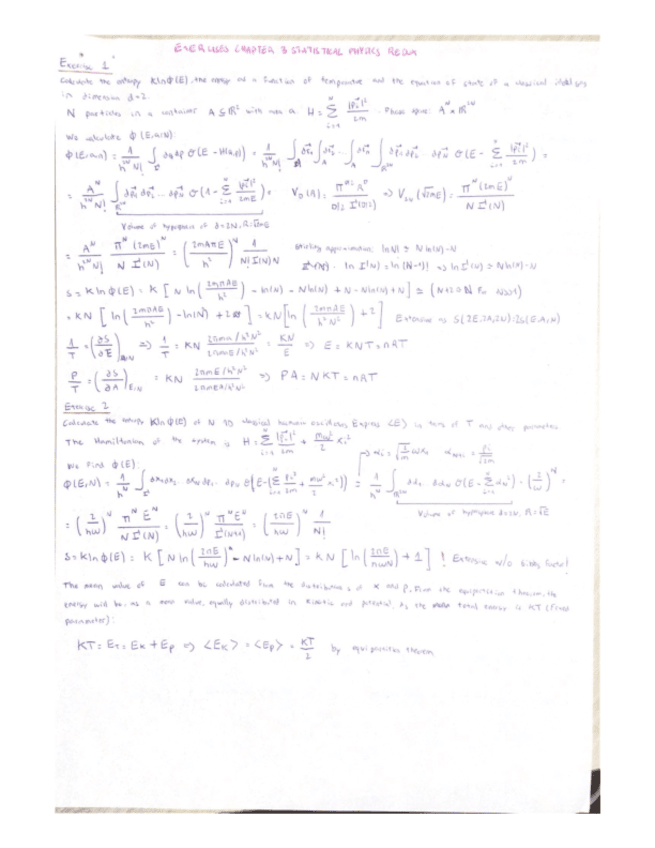 EXERCISES CHAPTER 3 STATISTICAL PHYSICS
Exercise 1
Calculate the entropy Kln ϕ(E), the energy as a function of temperature and the equation of state of a classical ideal gas
in dimension d=2.
N particles in a container A ⊆ ℝ² with area a: H = Σ_{i=1}^{N} |p̄i|²/2m . Phase space: A^N × ℝ^{2N}
We calculate ϕ(E,a,N):
ϕ(E,a,N) = 1/(h^{2N} N!) ∫ dq dp σ(E - H(q,p)) = 1/(h^{2N} N!) ∫_A ∫_A ... ∫_A ∫_{ℝ^{2N}} σ(E - Σ_{i=1}^{N} |p̄i|²/2m) =
= A^N/(h^{2N} N!) ∫_{ℝ^{2N}} dp̄1 dp̄2 ... dp̄N σ(1 - Σ |p̄i|²/2mE) = . V_D(R) = Π^{D/2} R^D / (D/2 Γ(D/2)) => V_{2N}(√2mE) = Π^N (2mE)^N / (N Γ(N))
Volume of hypersphere of d=2N, R=√2mE
= A^N/(h^{2N} N!) Π^N (2mE)^N / (N Γ(N)) = (2mAπE/h²)^N 1/(N! Γ(N) N) Stirling approximation: ln N! ≈ N ln(N) - N
ln Γ(N) = ln (N-1)! => ln Γ(N) ≈ N ln(N) - N
S = K ln ϕ(E) = K [N ln(2mπAE/h²) - ln(N) - N ln(N) + N - N ln(N) + N] ≈ (N+2 ≈ N for N>>1)
= KN [ln(2mπAE/h²) - ln(N) + 2] = KN [ln(2mπAE/h²N²) + 2] Extensive as S(2E,2A,2N) = 2S(E,A,N)
1/T = (∂S/∂E)_{A,N} => 1/T = KN (2πmA/h²N²)/(2πmEA/h²N²) = KN/E => E = KNT = nRT
P/T = (∂S/∂A)_{E,N} = KN (2πmE/h²N²)/(2πmEA/h²N²) => PA = NKT = nRT
Exercise 2
Calculate the entropy Kln ϕ(E) of N 1D classical harmonic oscillators. Express <E> in terms of T and other parameters
The Hamiltonian of the system is H = Σ_{i=1}^{N} |pi|²/2m + mω²/2 xi² → αi = √(m/2) ωxi α_{N+i} = pi/√2m
We find ϕ(E):
ϕ(E,N) = 1/h^N ∫ dx1 dx2 .. dxN dp1 .. dpN σ(E - (Σ_{i=1}^{N} pi²/2m + mω²/2 xi²)) = 1/h^N ∫_{ℝ^{2N}} dα1 .. dαN σ(E - Σ αi²) · (2/ω)^N =
Volume of hypersphere d=2N, R=√E
= (2/hω)^N Π^N E^N / (N Γ(N)) = (2/hω)^N Π^N E^N / Γ(N+1) = (2πE/hω)^N 1/N!
S = K ln ϕ(E) = K [N ln(2πE/hω) - N ln(N) + N] = KN [ln(2πE/hωN) + 1] ! Extensive w/o Gibbs factor!
The mean value of E can be calculated from the distributions of x and p. From the equipartition theorem, the
energy will be, as a mean value, equally distributed in kinetic and potential. As the mean total energy is KT (From
parameter):
KT = E_T = E_K + E_P => <E_K> = <E_P> = KT/2 by equipartition theorem